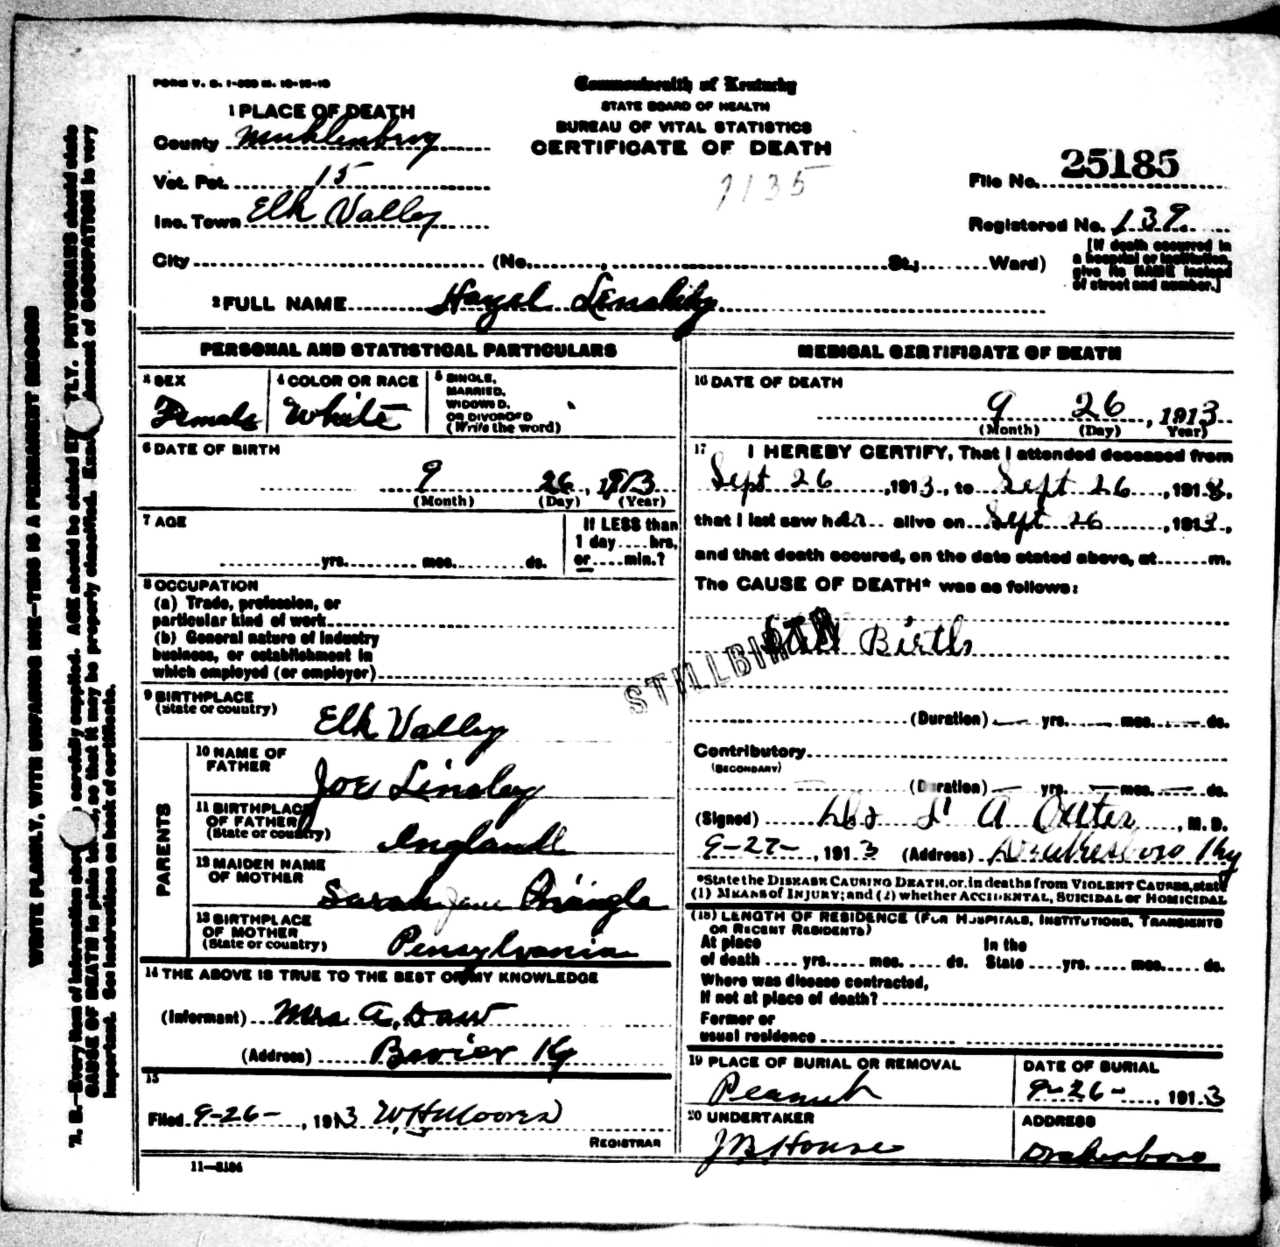 FORM V. S. 1-
Commonwealth of Kentucky
STATE BOARD OF HEALTH
BUREAU OF VITAL STATISTICS
CERTIFICATE OF DEATH
1 PLACE OF DEATH
County Muhlenburg
Vot. Pct. 15
Inc. Town Elk Valley
1135
File No. 25185
Registered No. 139
[If death occurred in
a hospital or institution,
give its NAME instead
of street and number.]
City (No. , St.; Ward)
2 FULL NAME Hazel Linsley
PERSONAL AND STATISTICAL PARTICULARS
3 SEX
Female
4 COLOR OR RACE
White
5 SINGLE,
MARRIED,
WIDOWED,
OR DIVORCED
(Write the word)
6 DATE OF BIRTH
9 26, 1913
(Month) (Day) (Year)
7 AGE
If LESS than
1 day ... hrs,
or ... min.?
yrs. mos. ds.
8 OCCUPATION
(a) Trade, profession, or
particular kind of work
(b) General nature of industry
business, or establishment in
which employed (or employer)
9 BIRTHPLACE
(State or country)
Elk Valley
PARENTS
10 NAME OF
FATHER
Joe Linsley
11 BIRTHPLACE
OF FATHER
(State or country)
England
12 MAIDEN NAME
OF MOTHER
Sarah Jane Pringle
13 BIRTHPLACE
OF MOTHER
(State or country)
Pensylvania
14 THE ABOVE IS TRUE TO THE BEST OF MY KNOWLEDGE
(Informant) Mrs A.
(Address) Bevier Ky
15
Filed 9-26-, 1913 W H Moores
REGISTRAR
11-3184
MEDICAL CERTIFICATE OF DEATH
16 DATE OF DEATH
9 26, 1913
(Month) (Day) Year)
17 I HEREBY CERTIFY, That I attended deceased from
Sept 26, 1913, to Sept 26, 1913,
that I last saw her alive on Sept 26, 1913,
and that death occured, on the date stated above, at m.
The CAUSE OF DEATH* was as follows:
Still Birth
STILLBIRTH
(Duration) yrs. mos. ds.
Contributory
(SECONDARY)
(Duration) yrs. mos. ds.
(Signed) A , M. D.
9-27-, 1913 (Address) Drakesboro Ky
*State the DISEASE CAUSING DEATH, or, in deaths from VIOLENT CAUSES, state
(1) MEANS OF INJURY; and (2) whether ACCIDENTAL, SUICIDAL or HOMICIDAL
(18) LENGTH OF RESIDENCE (FOR HOSPITALS, INSTITUTIONS, TRANSIENTS
OR RECENT RESIDENTS)
At place In the
of death yrs. mos. ds. State yrs. mos. ds.
Where was disease contracted,
If not at place of death?
Former or
usual residence
19 PLACE OF BURIAL OR REMOVAL
Peanut
DATE OF BURIAL
9-26-, 1913
20 UNDERTAKER
J B House
ADDRESS
Drakesboro
WRITE PLAINLY, WITH UNFADING INK—THIS IS A PERMANENT RECORD
N. B.—Every item of information carefully supplied. AGE should be stated TLY. PHYSICIANS should state
CAUSE OF DEATH in plain , so that it may be properly classified. ment of OCCUPATION is very
important. See instructions on back of certificate.